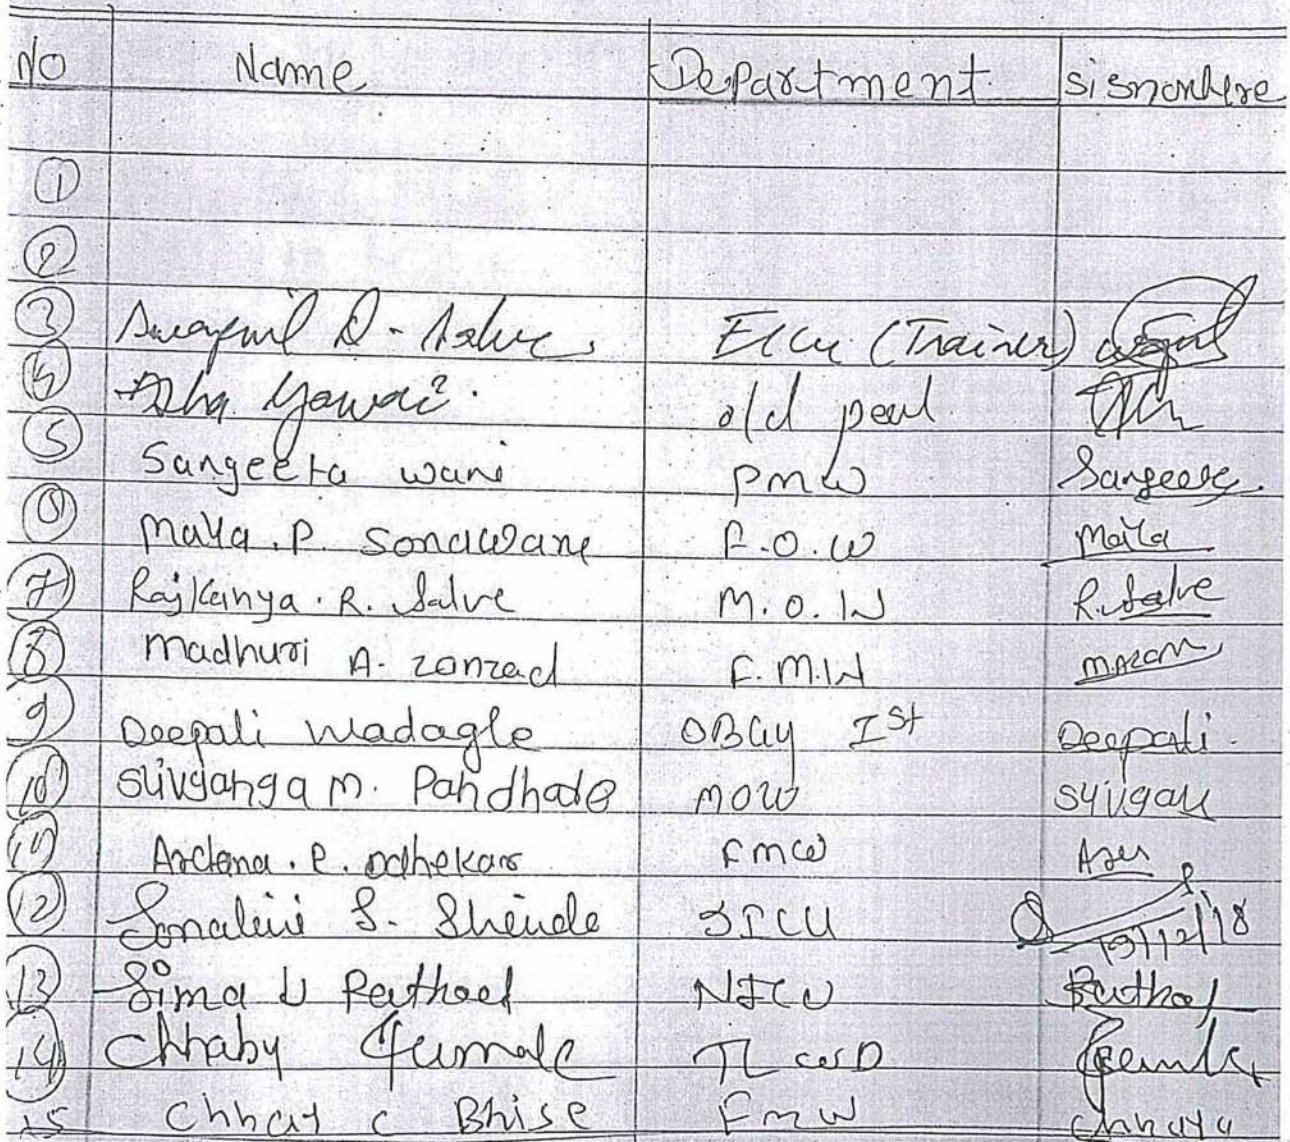 No Name Department sisnonhre
1
2
3 Swapnil D. Salve (Trainer)
4 Asha old
5 Sangeeta wani PMW Sangeeta
6 Maya . P. Sonawane F.O.W Maya
7 Rajkanya . R. Salve M.O.W R. Salve
8 Madhuri A. zonzad F.M.W
9 Deepali Wadagle OBGy Ist Deepali
10 Shivganga M. Pandhade MOW
11 FMW
12 S. Shinde SICU 19/12/18
13 Sima Rathod NICU Rathod
14 Chhaby
15 Chhay C Bhise FMW chhaya